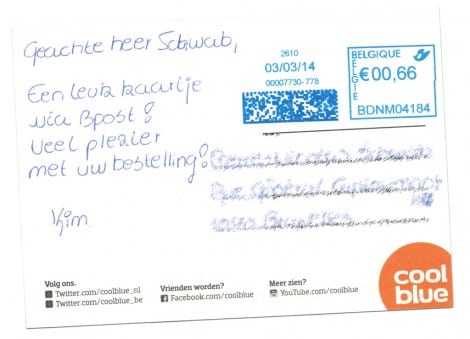 Geachte heer Schwab,
Een leuk kaartje
via Bpost!
Veel plezier
met uw bestelling!
Kim
2610
03/03/14
00007730-778
BELGIQUE
BELGIE
€00,66
BDNM04184
Volg ons.
Twitter.com/coolblue_nl
Twitter.com/coolblue_be
Vrienden worden?
Facebook.com/coolblue
Meer zien?
YouTube.com/coolblue
cool
blue